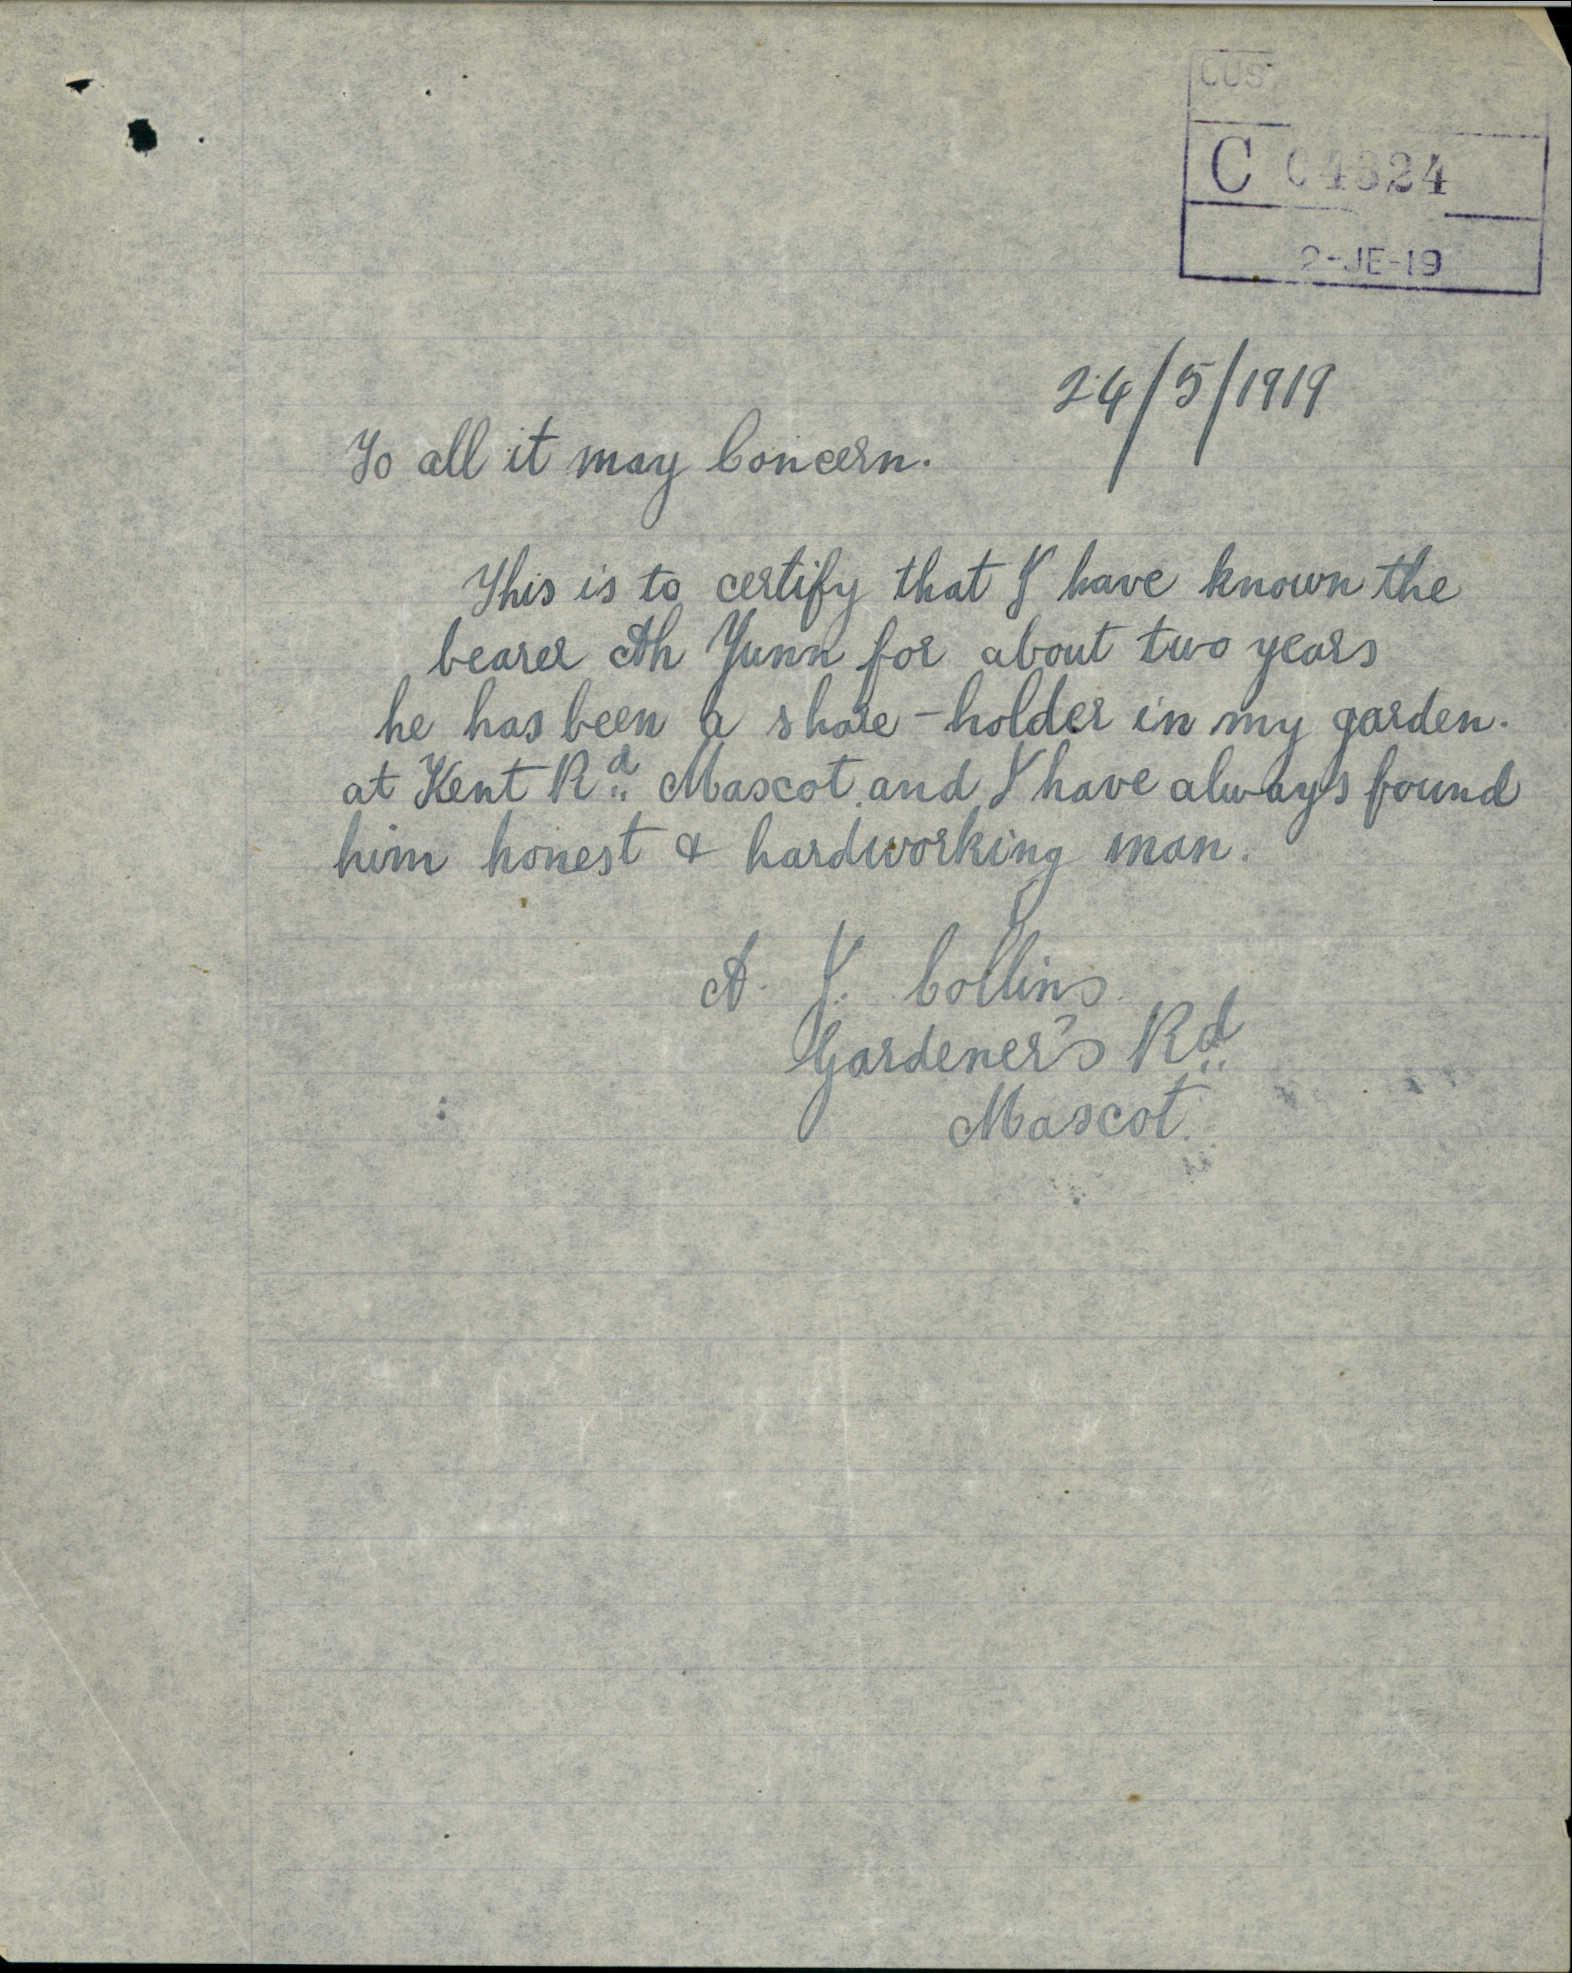 CUS
C 04324
2-JE-19
24/5/1919
To all it may Concern.
This is to certify that I have known the
bearer Ah Yunn for about two years
he has been a share-holder in my garden.
at Kent Rd. Mascot and I have always found
him honest & hardworking man.
A. J. Collins
Gardener's Rd.
Mascot.